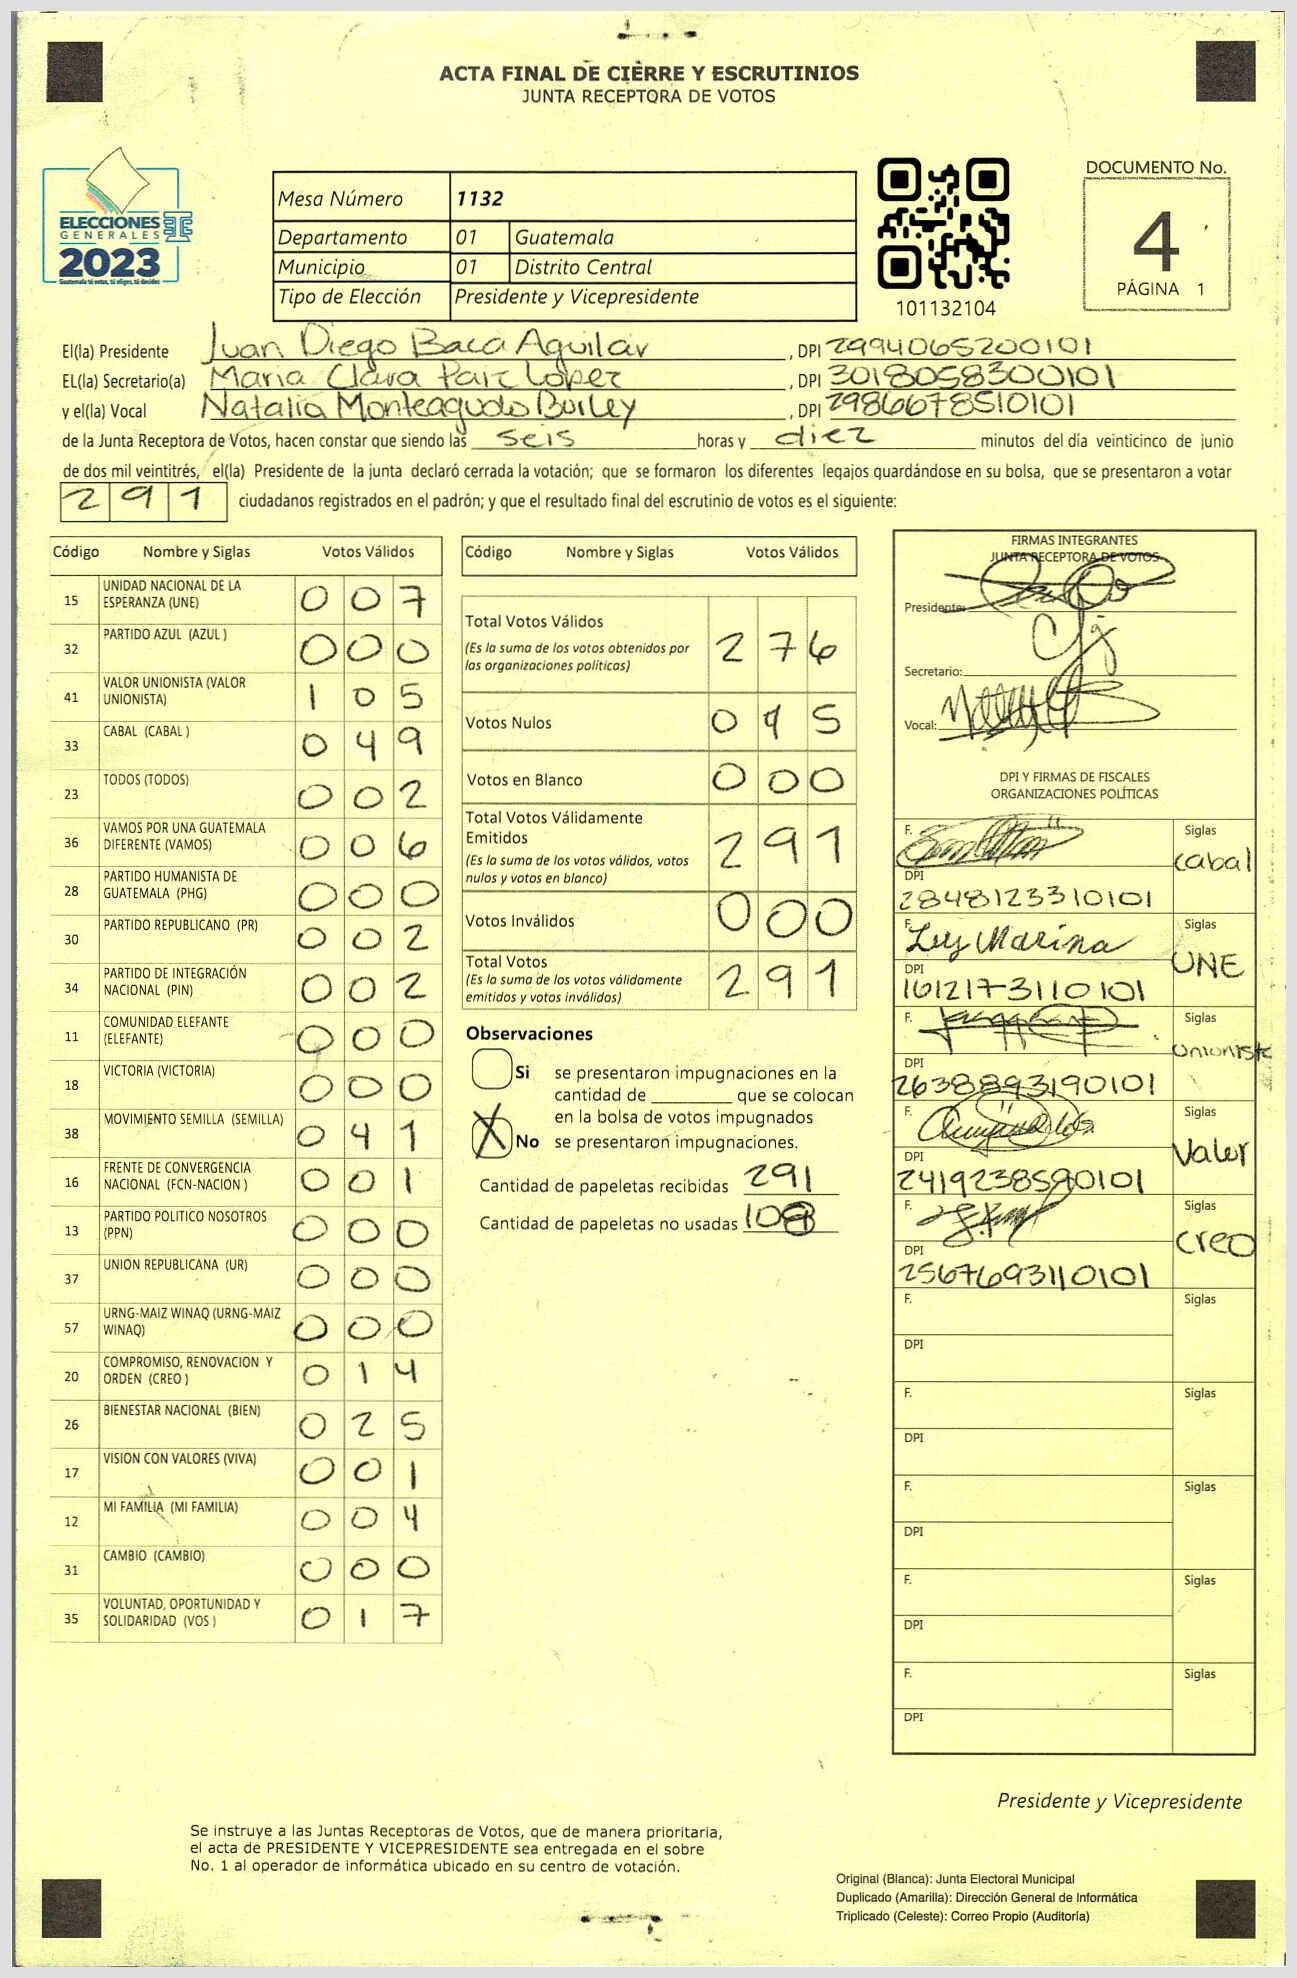 ACTA FINAL DE CIERRE Y ESCRUTINIOS
JUNTA RECEPTORA DE VOTOS
ELECCIONES
GENERALES
2023
Guatemala tú votas, tú eliges, tú decides
Mesa Número 1132
Departamento 01 Guatemala
Municipio 01 Distrito Central
Tipo de Elección Presidente y Vicepresidente
101132104
DOCUMENTO No.
4
PÁGINA 1
El(la) Presidente Juan Diego Baca Aguilar, DPI 2994065200101
EL(la) Secretario(a) Maria Clara Paiz López, DPI 3018058300101
y el(la) Vocal Natalia Monteagudo Burley, DPI 2986678510101
de la Junta Receptora de Votos, hacen constar que siendo las seis horas y diez minutos del día veinticinco de junio
de dos mil veintitrés, el(la) Presidente de la junta declaró cerrada la votación; que se formaron los diferentes legajos quardándose en su bolsa, que se presentaron a votar
291 ciudadanos registrados en el padrón; y que el resultado final del escrutinio de votos es el siguiente:
Código Nombre y Siglas Votos Válidos
15 UNIDAD NACIONAL DE LA
ESPERANZA (UNE) 0 0 7
32 PARTIDO AZUL (AZUL ) 0 0 0
41 VALOR UNIONISTA (VALOR
UNIONISTA) 1 0 5
33 CABAL (CABAL ) 0 4 9
23 TODOS (TODOS) 0 0 2
36 VAMOS POR UNA GUATEMALA
DIFERENTE (VAMOS) 0 0 6
28 PARTIDO HUMANISTA DE
GUATEMALA (PHG) 0 0 0
30 PARTIDO REPUBLICANO (PR) 0 0 2
34 PARTIDO DE INTEGRACIÓN
NACIONAL (PIN) 0 0 2
11 COMUNIDAD ELEFANTE
(ELEFANTE) 0 0 0
18 VICTORIA (VICTORIA) 0 0 0
38 MOVIMIENTO SEMILLA (SEMILLA) 0 4 1
16 FRENTE DE CONVERGENCIA
NACIONAL (FCN-NACION ) 0 0 1
13 PARTIDO POLITICO NOSOTROS
(PPN) 0 0 0
37 UNION REPUBLICANA (UR) 0 0 0
57 URNG-MAIZ WINAQ (URNG-MAIZ
WINAQ) 0 0 0
20 COMPROMISO, RENOVACION Y
ORDEN (CREO ) 0 1 4
26 BIENESTAR NACIONAL (BIEN) 0 2 5
17 VISION CON VALORES (VIVA) 0 0 1
12 MI FAMILIA (MI FAMILIA) 0 0 4
31 CAMBIO (CAMBIO) 0 0 0
35 VOLUNTAD, OPORTUNIDAD Y
SOLIDARIDAD (VOS ) 0 1 7
Código Nombre y Siglas Votos Válidos
Total Votos Válidos
(Es la suma de los votos obtenidos por
las organizaciones políticas) 2 7 6
Votos Nulos 0 1 5
Votos en Blanco 0 0 0
Total Votos Válidamente
Emitidos
(Es la suma de los votos válidos, votos
nulos y votos en blanco) 2 9 1
Votos Inválidos 0 0 0
Total Votos
(Es la suma de los votos válidamente
emitidos y votos inválidos) 2 9 1
Observaciones
Si se presentaron impugnaciones en la
cantidad de que se colocan
en la bolsa de votos impugnados
X No se presentaron impugnaciones.
Cantidad de papeletas recibidas 291
Cantidad de papeletas no usadas
FIRMAS INTEGRANTES
JUNTA RECEPTORA DE VOTOS
Presidente:
Secretario:
Vocal:
DPI Y FIRMAS DE FISCALES
ORGANIZACIONES POLÍTICAS
F. Siglas
cabal
DPI
2848123310101
F. Siglas
Luz Marina UNE
DPI
1612173110101
F. Siglas
unionista
DPI
2638893190101
F. Siglas
Valor
DPI
2419238590101
F. Siglas
creo
DPI
2567693110101
F. Siglas
DPI
F. Siglas
DPI
F. Siglas
DPI
F. Siglas
DPI
F. Siglas
DPI
Presidente y Vicepresidente
Se instruye a las Juntas Receptoras de Votos, que de manera prioritaria,
el acta de PRESIDENTE Y VICEPRESIDENTE sea entregada en el sobre
No. 1 al operador de informática ubicado en su centro de votación.
Original (Blanca): Junta Electoral Municipal
Duplicado (Amarilla): Dirección General de Informática
Triplicado (Celeste): Correo Propio (Auditoría)